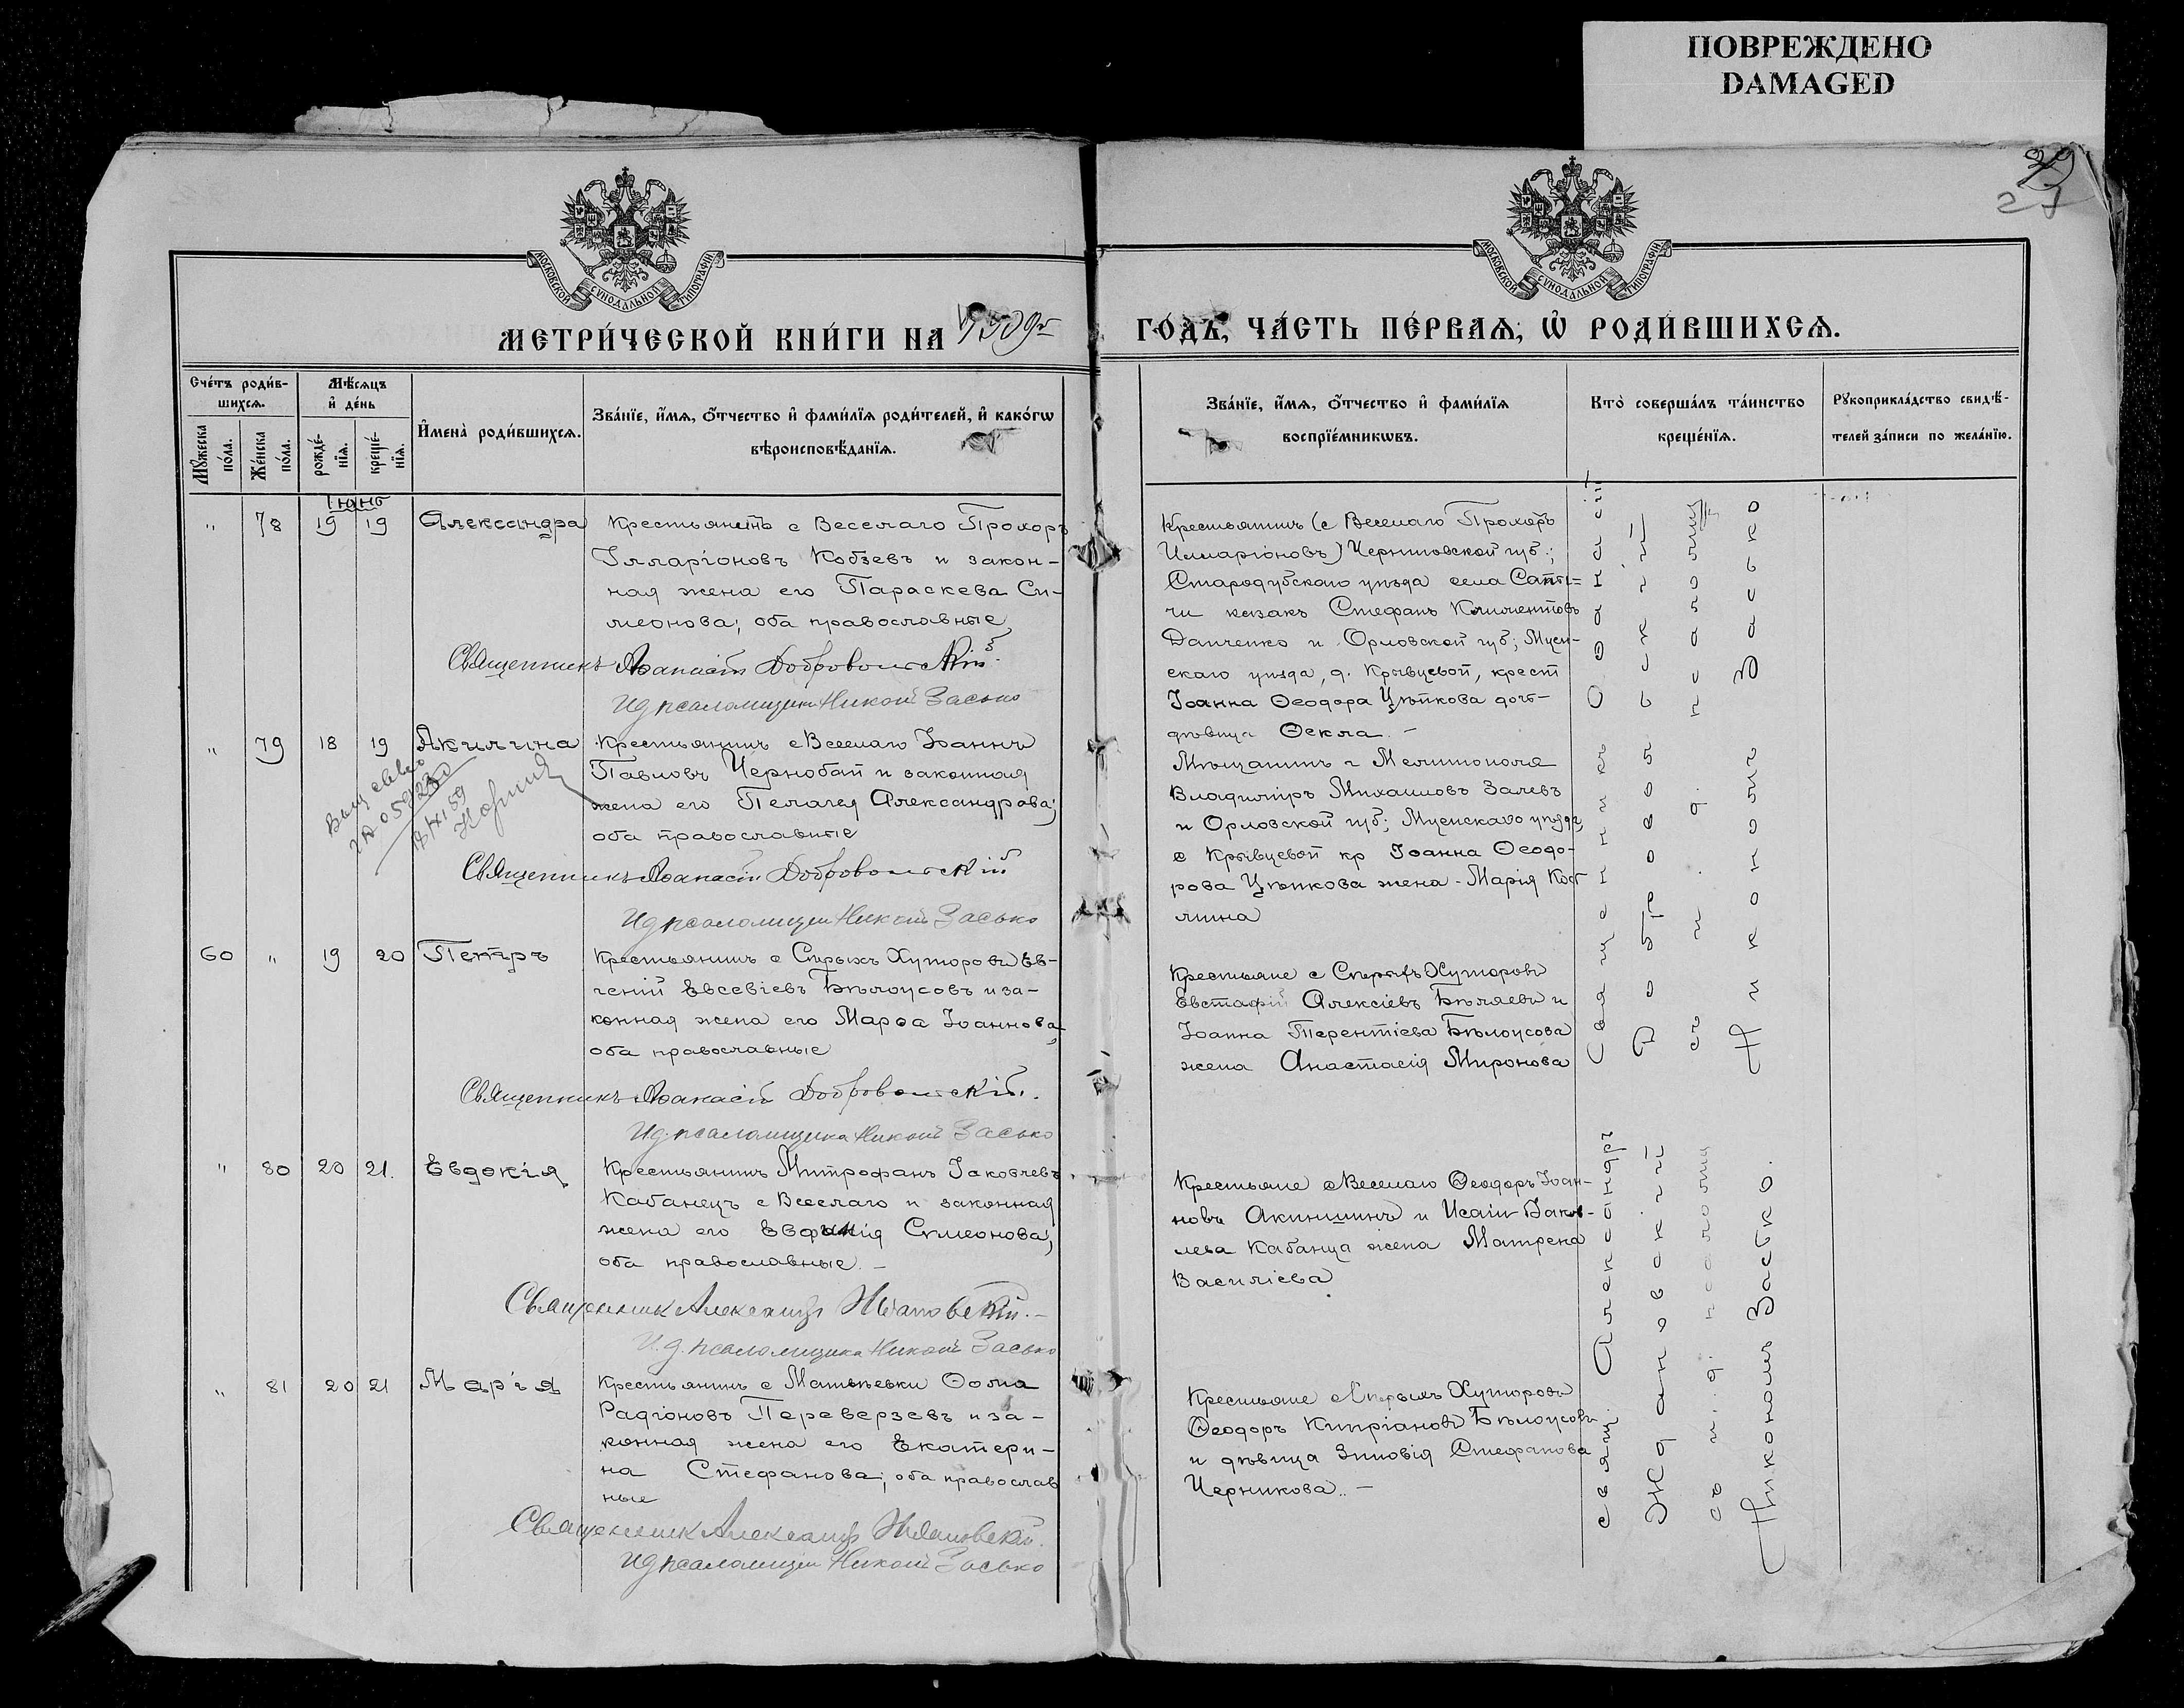 ПОВРЕЖДЕНО
DAMAGED
29
МОСКОВСКОЙ СУНОДАЛЬНОЙ ТИПОГРАФІИ
МОСКОВСКОЙ СУНОДАЛЬНОЙ ТИПОГРАФІИ
МЕТРИ́ЧЕСКОЙ КНИ́ГИ НА 1909г
ГО́ДЪ, ЧА́СТЬ ПЕ́РВАѦ, Ѡ҆ РОДИ́ВШИХСѦ.
Сче́тъ роди́в-
шихсѧ.
Мꙋ́жеска по́ла.
Же́нска по́ла.
Мѣ́сѧцъ
и҆ де́нь
рожде́-
нїѧ.
креще́-
нїѧ.
И҆мена̀ роди́вшихсѧ.
Зва́нїе, и҆́мѧ, ѻ҆́тчество и҆ фами́лїѧ роди́телей, и҆ како́гѡ
вѣроисповѣ́данїѧ.
Зва́нїе, и҆́мѧ, ѻ҆́тчество и҆ фами́лїѧ
воспрїе́мникѡвъ.
Кто̀ соверша́лъ та́инство
креще́нїѧ.
Рꙋкоприкла́дство свидѣ́-
телей за́писи по жела́нїю.
Іюнь
" 78 19 19 Александра
Крестьянинъ с Веселаго Прохоръ
Илларіоновъ Кобзевъ и закон-
ная жена его Параскева Си-
меонова; оба православные
Священникъ Аѳанасій Добровольскій
Ид псаломщика Никонъ Засько
Крестьянинъ (с Веселаго Прохоръ
Илларіоновъ) Черниговской губ.;
Стародубскаго уѣзда села Сапы=
чи казакъ Стефанъ Климентовъ
Данченко и Орловской губ; Мцен-
скаго уѣзда, д. Кривцевой, крест
Іоанна Ѳеодора Цѣпкова дочь-
дѣвица Ѳекла. -
" 79 18 19 Акилина
Крестьянинъ с Веселаго Іоаннъ
Павловъ Чернобай и законная
жена его Пелагея Александрова;
оба православные
Священникъ Аѳанасій Добровольскій
Ид псаломщи Никонъ Засько
Мѣщанинъ г Мелитополя
Владиміръ Михаиловъ Залевъ
и Орловской губ; Мценскаго уѣзда,
с Кривцевой кр Іоанна Ѳеодо-
рова Цѣпкова жена - Марія
Священникъ Аѳанасій
Добровольскій
съ и. д. псаломщ
Никономъ Засько
60 " 19 20 Петръ
Крестьянинъ с Сѣрыхъ Хуторовъ Ев-
геній Евсевіевъ Бѣлоусовъ и за-
конная жена его Марѳа Іоаннова,
оба православные
Священникъ Аѳанасій Добровольскій.
Ид. псаломщика Никонъ Засько
Крестьяне с Сѣрыхъ Хуторовъ
Евстафій Алексіевъ Бѣляевъ и
Іоанна Терентіева Бѣлоусова
жена Анастасія Миронова
" 80 20 21. Евдокія
Крестьянинъ Митрофанъ Іаковлевъ
Кабанецъ с Веселаго и законная
жена его Евфимія Симеонова,
оба православные. -
Священник Александръ Ждановскій. -
И. д. псаломщика Никонъ Засько
Крестьяне с Веселаго Ѳеодоръ Іоан-
новъ Акиншинъ и Исаіи Іаков-
лева Кабанца жена Матрена
Василіева
Свящ. Александръ
Ждановскій
съ и. д. псаломщ
Никономъ Засько.
" 81 20 21 Марія
Крестьянинъ с Матвѣевки Ѳома
Радіоновъ Переверзевъ и за-
конная жена его Екатери-
на Стефанова; оба православ
ные
Священник Александръ Ждановскій.
Ид псаломщи Никонъ Засько
Крестьяне с Сѣрыхъ Хуторовъ
Ѳеодоръ Кипріановъ Бѣлоусовъ
и дѣвица Зиновія Стефанова
Черникова.. -